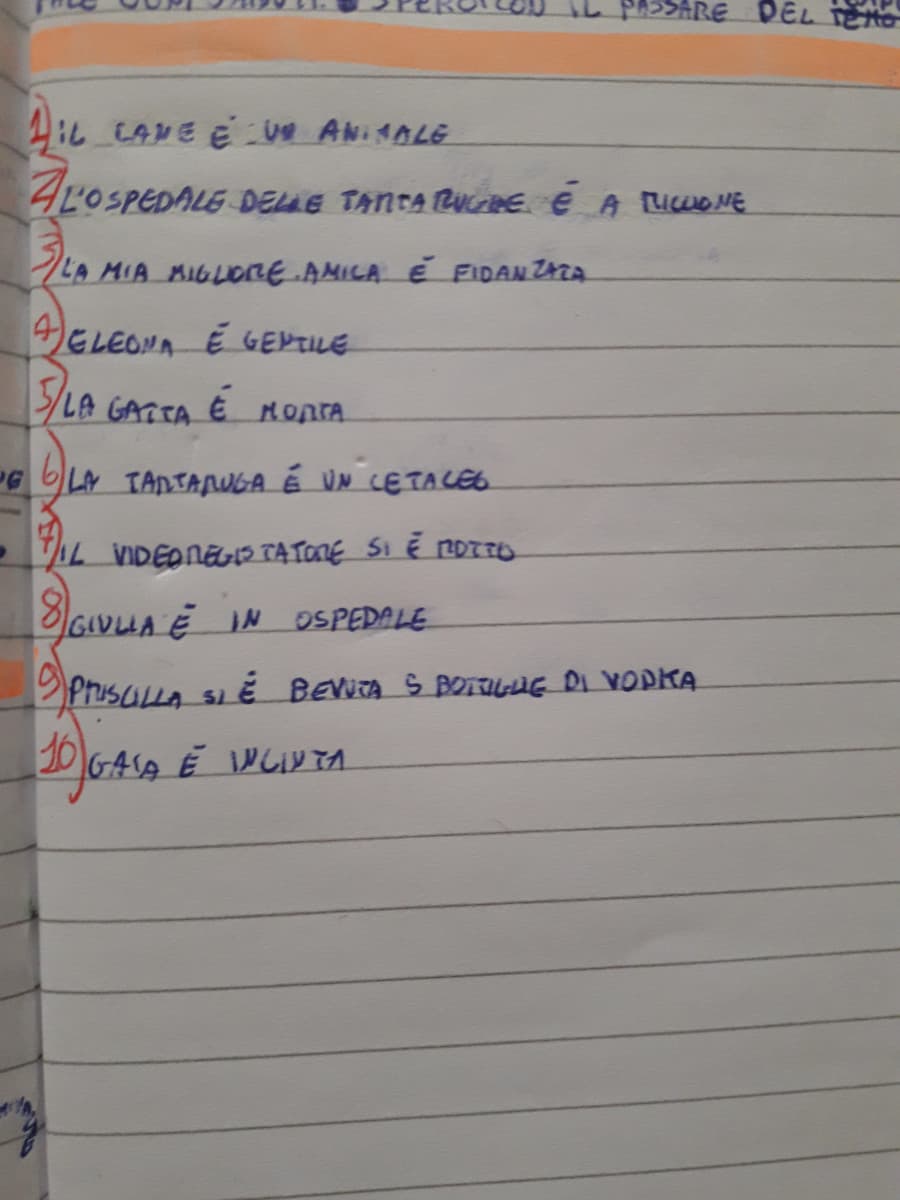 SPERO CON IL PASSARE DEL TEMO
1) IL CANE É UN ANIMALE
2) L'OSPEDALE DELLE TARTARUGHE É A RICCIONE
3) LA MIA MIGLIORE AMICA É FIDANZATA
4) ELEONA É GENTILE
5) LA GATTA É MORTA
6) LA TARTARUGA É UN CETACEO
7) IL VIDEOREGISTATORE SI É ROTTO
8) GIULIA É IN OSPEDALE
9) PRISCILLA SI É BEVUTA 5 BOTTIGLIE DI VODKA
10) GAIA É INCINTA